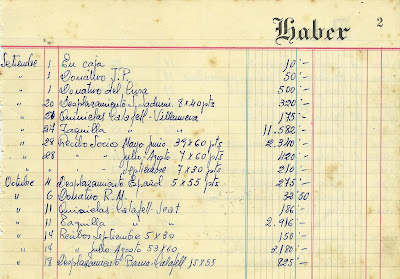 Haber 2
Setiembre 1 En caja 10'-
" 1 Donativo J.P. 50'-
" 1 Donativo del Cura 500'-
" 20 Desplazamiento 8x40 pts 320'-
" Quinielas Calafell-Villanueva 175'-
" 27 Taquilla " " 11.582'-
" 28 Recibo Socio Mayo Junio 39x60 pts 2.340'-
" 28 " Julio-Agosto 7x60 pts 420'-
" " Septiembre 7x30 pts 210'-
Octubre 4 Desplazamiento Español 5x55 pts 275'-
" 6 Donativo R.M. 32'50
" 11 Quinielas Calafell-Seat 186'-
" 11 Taquilla " " 2.916'-
" 14 Recibos Septiembre 5x30 150'-
" 14 " Julio Agosto 53x60 3.180'-
" 18 Desplazamiento Calafell 15x55 825'-